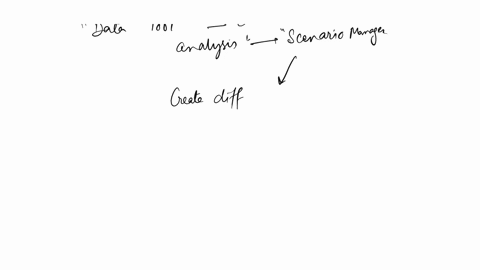 "Data
analysis" → "Scenario Manager
Create diff